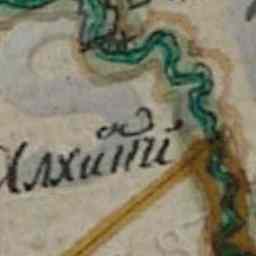 Алхити